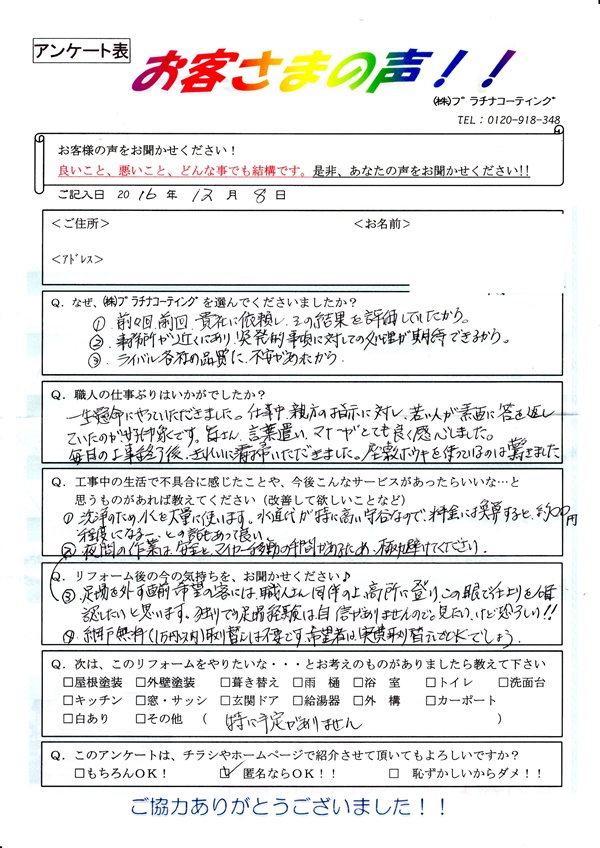 アンケート表
お客さまの声！！
㈱プラチナコーティング
TEL：0120-918-348
お客様の声をお聞かせください！
良いこと、悪いこと、どんな事でも結構です。是非、あなたの声をお聞かせください!!
ご記入日 2016年 12月 8日
＜ご住所＞ ＜お名前＞
＜ｱﾄﾞﾚｽ＞
Q．なぜ、㈱プラチナコーティングを選んでくださいましたか？
① 前々回、前回、貴社に依頼し、その結果を評価していたから。
② 事務所が近くにあり、突発的事項に対しての処理が期待できるから。
③ ライバル各社の品質に、不安があたから
Q．職人の仕事ぶりはいかがでしたか？
一生懸命にやっていただきました。仕事中、親方の指示に対し、若い人が素直に答を返し
ていたのが好印象です。皆さん、言葉遣い、マナーがとても良く感心しました。
毎日の工事終了後、きれいに清掃いただきました。座敷ホウキを使っているのは驚きました
Q．工事中の生活で不具合に感じたことや、今後こんなサービスがあったらいいな…と
思うものがあれば教えてください（改善して欲しいことなど）
① 洗浄のため、水を大量に使います。水道代が特に高い守谷なので、料金には換算すると、約 円
程度になる…との話もあって良い
② 夜間の作業は、安全と、マイカー移動の時間があるため、極力避けてください。
Q．リフォーム後の今の気持ちを、お聞かせください♪
③ 足場を外す直前、希望の客には、職人さん同伴の上、高所に登り、この眼で仕上りを確
認したいと思います。独りでの足場経験は自信がありませんので。見たい、けど恐ろしい!!
④ 網戸無料(1万円以内)取り替えは不要です。希望者は、実費取り替えでOKでしょう。
Q．次は、このリフォームをやりたいな・・・とお考えのものがありましたら教えて下さい
□屋根塗装 □外壁塗装 □葺き替え □雨 樋 □浴 室 □トイレ □洗面台
□キッチン □窓・サッシ □玄関ドア □給湯器 □外 構 □カーポート
□白あり □その他 （ 特に予定がありません ）
Q．このアンケートは、チラシやホームページで紹介させて頂いてもよろしいですか？
□もちろんOK！ ☑ 匿名ならOK！！ □ 恥ずかしいからダメ！！
ご協力ありがとうございました！！